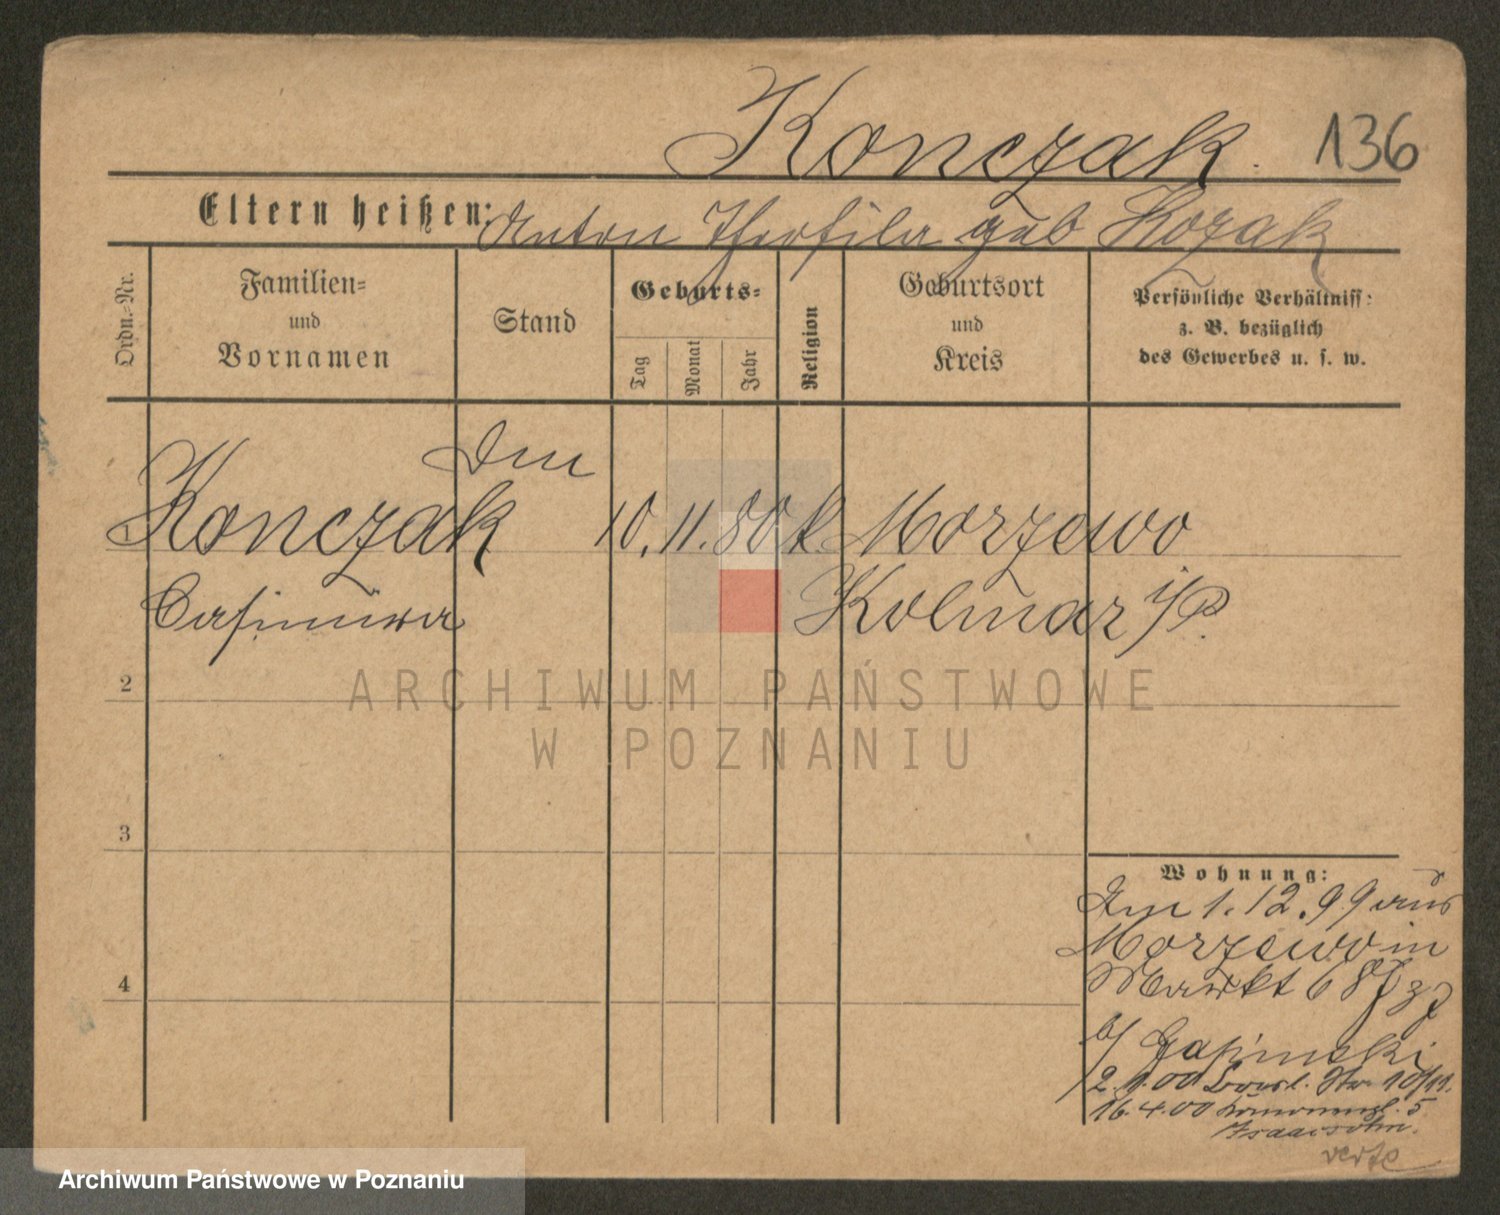 Konczak. 136
Eltern heißen: Anton Theofila geb Kozak
Ordn.-Nr.
Familien=
und
Vornamen
Stand
Geburts=
Tag
Monat
Jahr
Religion
Geburtsort
und
Kreis
Persönliche Verhältniss:
z. B. bezüglich
des Gewerbes u. s. w.
1 Konczak 10. 11. 80 k. Morzewo
Casimira Kolmar i/P.
2
3
4
Wohnung:
Am 1. 12. 99 aus
Morzewo in
Markt 68
b/
2. 1. 00 10/11.
16. 4. 00 5
Isaacsohn.
verte
ARCHIWUM PAŃSTWOWE
W POZNANIU
Archiwum Państwowe w Poznaniu